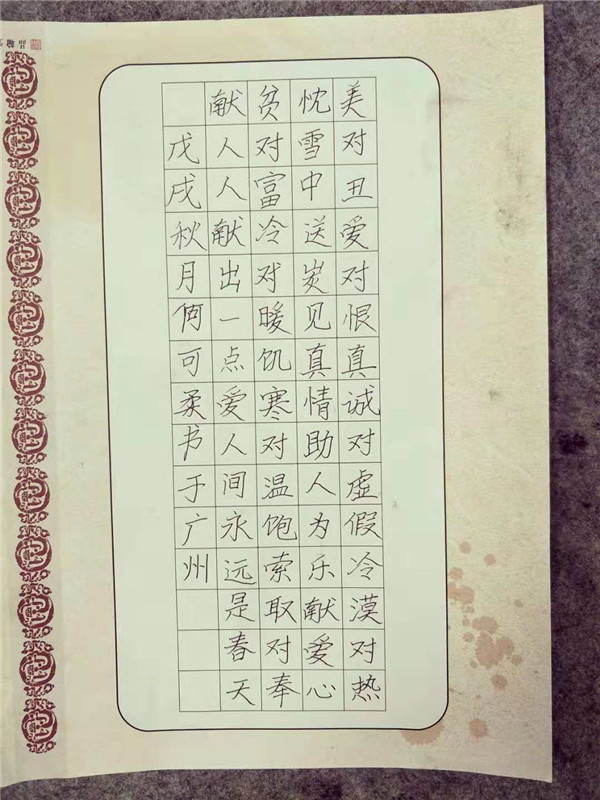 美对丑爱对恨真诚对虚假冷漠对热
忱雪中送炭见真情助人为乐献爱心
贫对富冷对暖饥寒对温饱索取对奉
献人人献出一点爱人间永远是春天
戊戌秋月可柔书于广州